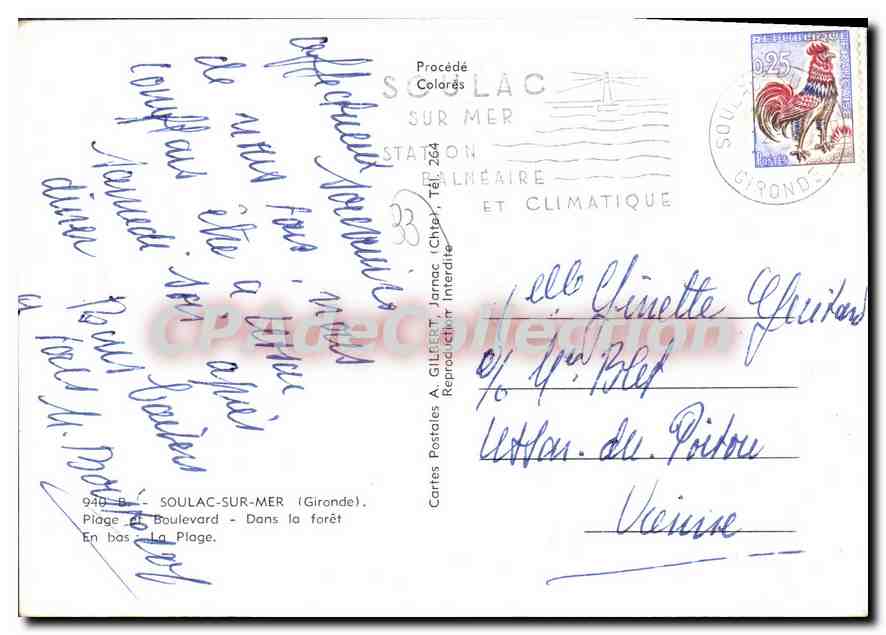 affectueux souvenirs
de nous tous nous
comptons être à
samedi soir après
diner Bons baisers
à tous
Procédé
Colorés
SOULAC
SUR MER
STATION
BALNÉAIRE
ET CLIMATIQUE
REPUBLIQUE FRANÇAISE
0,25
POSTES
SOULAC
GIRONDE
33
Cartes Postales A. GILBERT, Jarnac (Chte), Tél. 264
Reproduction Interdite
Melle Ginette Guitard
c/o Mr Blet
Usson-du-Poitou
Vienne
940 B. - SOULAC-SUR-MER (Gironde).
Plage et Boulevard - Dans la forêt
En bas : La Plage.
CPAdeCollection